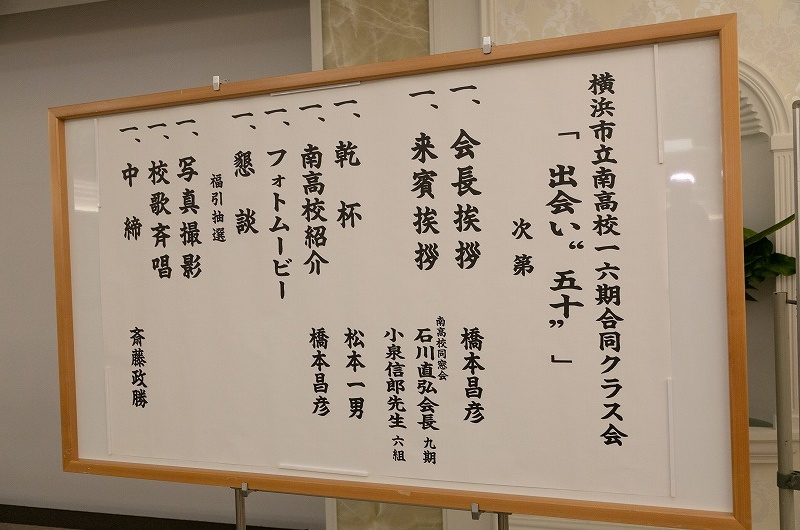 横浜市立南高校一六期合同クラス会
「出会い“五十”」
次第
一、会長挨拶 橋本昌彦
一、来賓挨拶 南高校同窓会 石川直弘会長 九期
小泉信郎先生 六組
一、乾杯 松本一男
一、南高校紹介 橋本昌彦
一、フォトムービー
一、懇談
福引抽選
一、写真撮影
一、校歌斉唱
一、中締 斎藤政勝